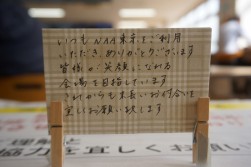 いつもNAA東京をご利用
いただき、ありがとうございます
皆様が笑顔になれる
会場を目指しています
これからも末長いお付合いを
宜しくお願い致します
宜しくお願い